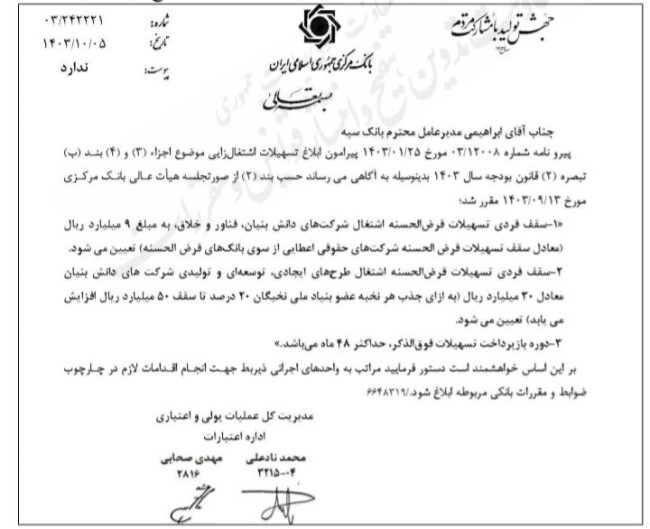 جهش تولید با مشارکت مردم
بانک مرکزی جمهوری اسلامی ایران
بسمه تعالی
شماره: ۰۳/۲۴۲۲۲۱
تاریخ: ۱۴۰۳/۱۰/۰۵
پیوست: ندارد
جناب آقای ابراهیمی مدیرعامل محترم بانک سپه
پیرو نامه شماره ۰۳/۱۲۰۰۸ مورخ ۱۴۰۳/۰۱/۲۵ پیرامون ابلاغ تسهیلات اشتغال‌زایی موضوع اجزاء (۳) و (۴) بند (ب)
تبصره (۲) قانون بودجه سال ۱۴۰۳ بدینوسیله به آگاهی می رساند حسب بند (۲) از صورتجلسه هیأت عالی بانک مرکزی
مورخ ۱۴۰۳/۰۹/۱۳ مقرر شد؛
«۱-سقف فردی تسهیلات قرض‌الحسنه اشتغال شرکت‌های دانش بنیان، فناور و خلاق، به مبلغ ۹ میلیارد ریال
(معادل سقف تسهیلات قرض الحسنه شرکت‌های حقوقی اعطایی از سوی بانک‌های قرض الحسنه) تعیین می شود.
۲-سقف فردی تسهیلات قرض‌الحسنه اشتغال طرح‌های ایجادی، توسعه‌ای و تولیدی شرکت های دانش بنیان
معادل ۳۰ میلیارد ریال (به ازای جذب هر نخبه عضو بنیاد ملی نخبگان ۲۰ درصد تا سقف ۵۰ میلیارد ریال افزایش
می یابد) تعیین می شود.
۳-دوره بازپرداخت تسهیلات فوق‌الذکر، حداکثر ۴۸ ماه می‌باشد.»
بر این اساس خواهشمند است دستور فرمایید مراتب به واحدهای اجرائی ذیربط جهت انجام اقدامات لازم در چارچوب
ضوابط و مقررات بانکی مربوطه ابلاغ شود./۶۶۴۸۳۱۹
مدیریت کل عملیات پولی و اعتباری
اداره اعتبارات
محمد نادعلی مهدی صحابی
۳۲۱۵-۰۴ ۲۸۱۶